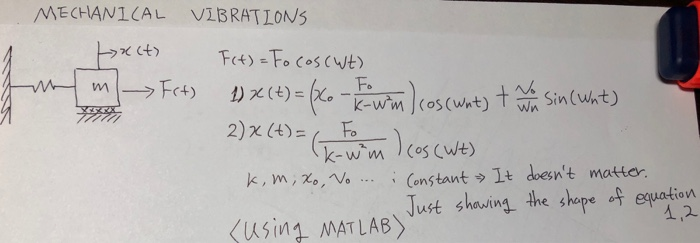 MECHANICAL VIBRATIONS
x(t)
m
F(t)
F(t) = F₀ cos(wt)
1) x(t) = (x₀ - F₀/(k-w²m)) cos(wnt) + v₀/wn sin(wnt)
2) x(t) = (F₀/(k-w²m)) cos(wt)
k, m, x₀, v₀ ... ; constant ⇒ It doesn't matter.
Just showing the shape of equation
1,2
<Using MATLAB>